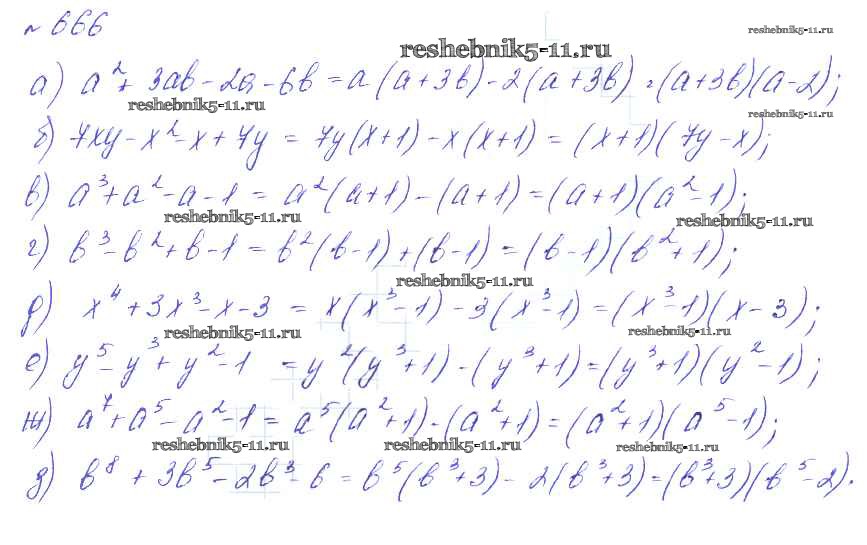 № 666
reshebnik5-11.ru
reshebnik5-11.ru
а) a² + 3ab - 2a - 6b = a(a+3b) - 2(a+3b) = (a+3b)(a-2);
reshebnik5-11.ru
reshebnik5-11.ru
б) 7xy - x² - x + 7y = 7y(x+1) - x(x+1) = (x+1)(7y-x);
в) a³ + a² - a - 1 = a²(a+1) - (a+1) = (a+1)(a²-1);
reshebnik5-11.ru
reshebnik5-11.ru
г) b³ - b² + b - 1 = b²(b-1) + (b-1) = (b-1)(b²+1);
reshebnik5-11.ru
д) x⁴ + 3x³ - x - 3 = x(x³-1) - 3(x³-1) = (x³-1)(x-3);
reshebnik5-11.ru
reshebnik5-11.ru
е) y⁵ - y³ + y² - 1 = y²(y³+1) - (y³+1) = (y³+1)(y²-1);
ж) a⁷ + a⁵ - a² - 1 = a⁵(a²+1) - (a²+1) = (a²+1)(a⁵-1);
reshebnik5-11.ru
reshebnik5-11.ru
reshebnik5-11.ru
д) b⁸ + 3b⁵ - 2b³ - 6 = b⁵(b³+3) - 2(b³+3) = (b³+3)(b⁵-2).